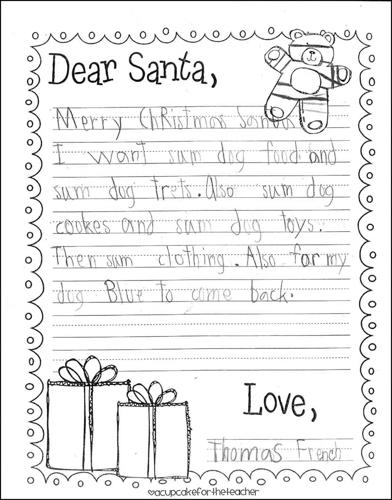 Dear Santa,
Merry Christmas Santa
I want sum dog food and
sum dog trets. Also sum dog
cookes and sum dog toys.
Then sum clothing. Also for my
dog Blue to come back.
Love,
Thomas French
acupcakefortheteacher